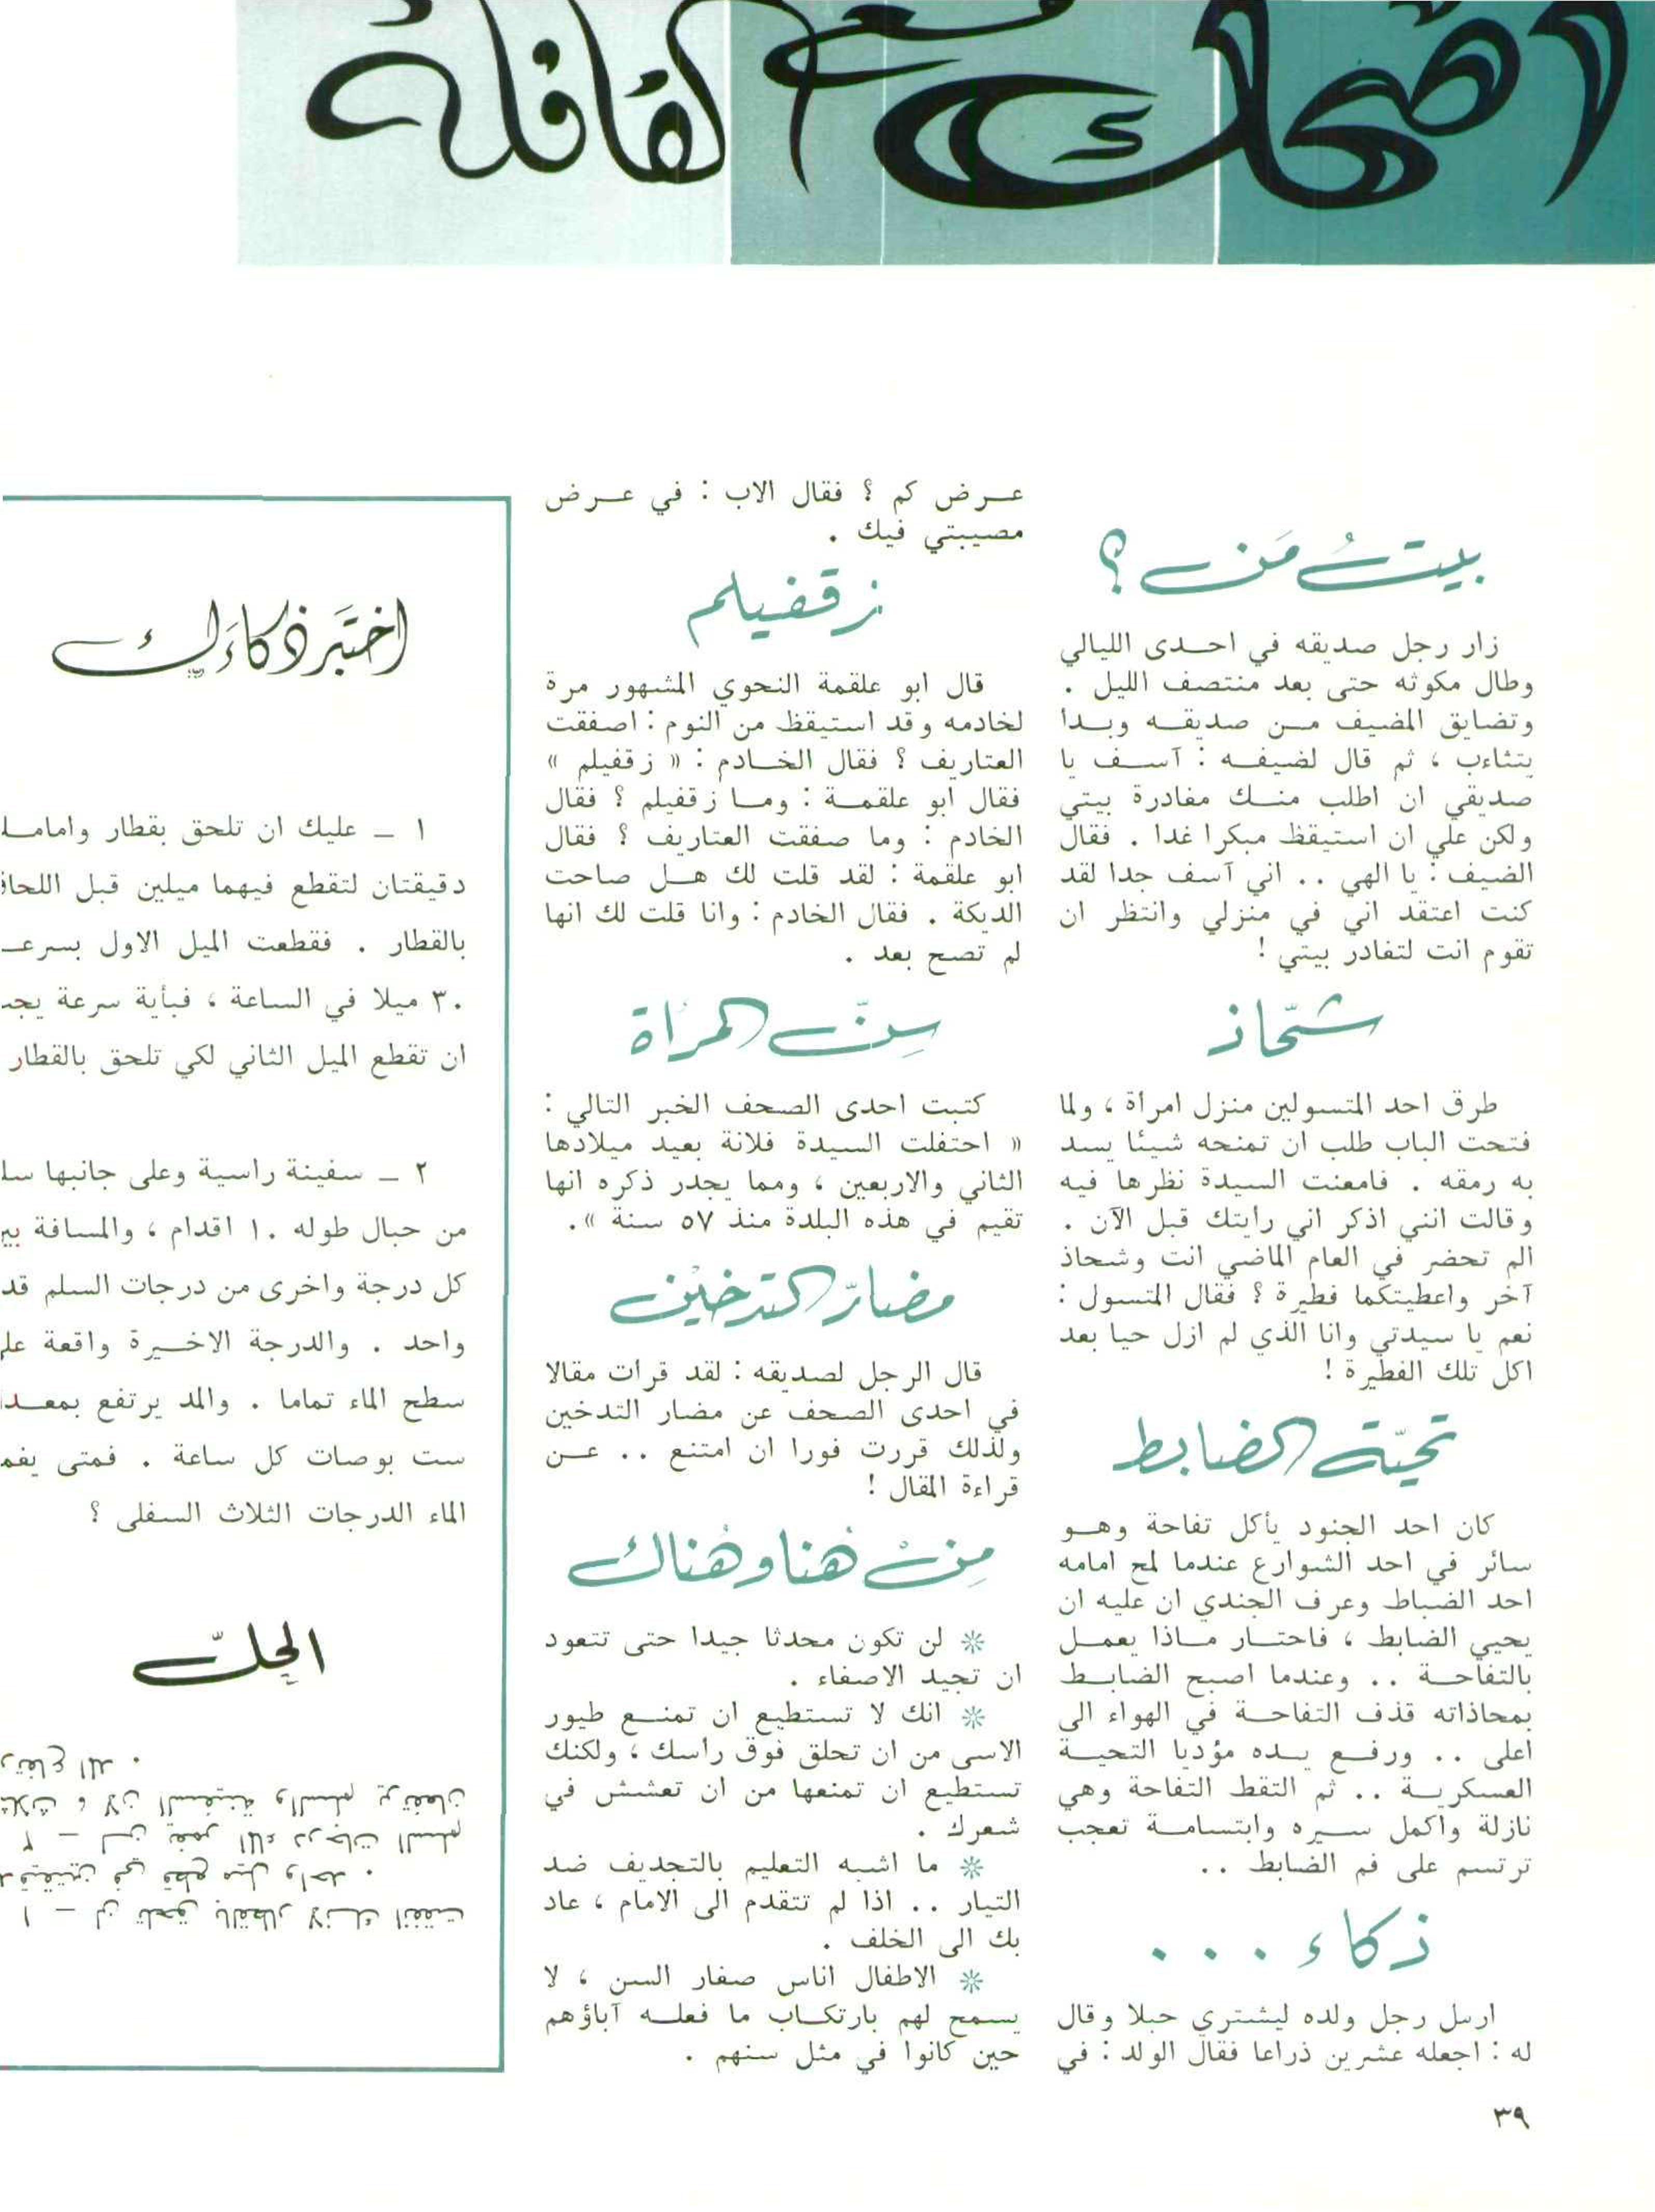 اضحك مع القافلة
بيت من ؟
زار رجل صديقه في احدى الليالي
وطال مكوثه حتى بعد منتصف الليل .
وتضايق المضيف من صديقه وبدا
يتثاءب ، ثم قال لضيفه : آسف يا
صديقي ان اطلب منك مغادرة بيتي
ولكن علي ان استيقظ مبكرا غدا . فقال
الضيف : يا الهي .. اني آسف جدا لقد
كنت اعتقد اني في منزلي وانتظر ان
تقوم انت لتغادر بيتي !
شحّاذ
طرق احد المتسولين منزل امراة ، ولما
فتحت الباب طلب ان تمنحه شيئا يسد
به رمقه . فامعنت السيدة نظرها فيه
وقالت انني اذكر اني رايتك قبل الآن .
الم تحضر في العام الماضي انت وشحاذ
آخر واعطيتكما فطيرة ؟ فقال المتسول :
نعم يا سيدتي وانا الذي لم ازل حيا بعد
اكل تلك الفطيرة !
تحيّة الضابط
كان احد الجنود يأكل تفاحة وهو
سائر في احد الشوارع عندما لمح امامه
احد الضباط وعرف الجندي ان عليه ان
يحيي الضابط ، فاحتار ماذا يعمل
بالتفاحة .. وعندما اصبح الضابط
بمحاذاته قذف التفاحة في الهواء الى
اعلى .. ورفع يده مؤديا التحية
العسكرية .. ثم التقط التفاحة وهي
نازلة واكمل سيره وابتسامة تعجب
ترتسم على فم الضابط ..
ذكاء . . .
ارسل رجل ولده ليشتري حبلا وقال
له : اجعله عشرين ذراعا فقال الولد : في
عرض كم ؟ فقال الاب : في عرض
مصيبتي فيك .
زقفيلم
قال ابو علقمة النحوي المشهور مرة
لخادمه وقد استيقظ من النوم : اصفقت
العتاريف ؟ فقال الخادم : « زقفيلم »
فقال ابو علقمة : وما زقفيلم ؟ فقال
الخادم : وما صفقت العتاريف ؟ فقال
ابو علقمة : لقد قلت لك هل صاحت
الديكة . فقال الخادم : وانا قلت لك انها
لم تصح بعد .
سِنّ المرأة
كتبت احدى الصحف الخبر التالي :
« احتفلت السيدة فلانة بعيد ميلادها
الثاني والاربعين ، ومما يجدر ذكره انها
تقيم في هذه البلدة منذ ٥٧ سنة » .
مضارّ التدخين
قال الرجل لصديقه : لقد قرات مقالا
في احدى الصحف عن مضار التدخين
ولذلك قررت فورا ان امتنع .. عن
قراءة المقال !
مِنْ هُنا وهُناك
* لن تكون محدثا جيدا حتى تتعود
ان تجيد الاصغاء .
* انك لا تستطيع ان تمنع طيور
الاسى من ان تحلق فوق راسك ، ولكنك
تستطيع ان تمنعها من ان تعشش في
شعرك .
* ما اشبه التعليم بالتجديف ضد
التيار .. اذا لم تتقدم الى الامام ، عاد
بك الى الخلف .
* الاطفال اناس صغار السن ، لا
يسمح لهم بارتكاب ما فعله آباؤهم
حين كانوا في مثل سنهم .
اختبر ذكاءك
١ ـ عليك ان تلحق بقطار وامامـ
دقيقتان لتقطع فيهما ميلين قبل اللحا
بالقطار . فقطعت الميل الاول بسرعـ
٣٠ ميلا في الساعة ، فبأية سرعة يجـ
ان تقطع الميل الثاني لكي تلحق بالقطار
٢ ـ سفينة راسية وعلى جانبها سلـ
من حبال طوله ١٠ اقدام ، والمسافة بيـ
كل درجة واخرى من درجات السلم قد
واحد . والدرجة الاخيرة واقعة علـ
سطح الماء تماما . والمد يرتفع بمعد
ست بوصات كل ساعة . فمتى يغمـ
الماء الدرجات الثلاث السفلى ؟
الحلّ
١ – لن تلحق بالقطار لانك انفقت
في قطع ميل واحد .
٢ – لن يغمر الماء درجات السلم
لان السفينة والسلم يرتفعان
المد .
٣٩